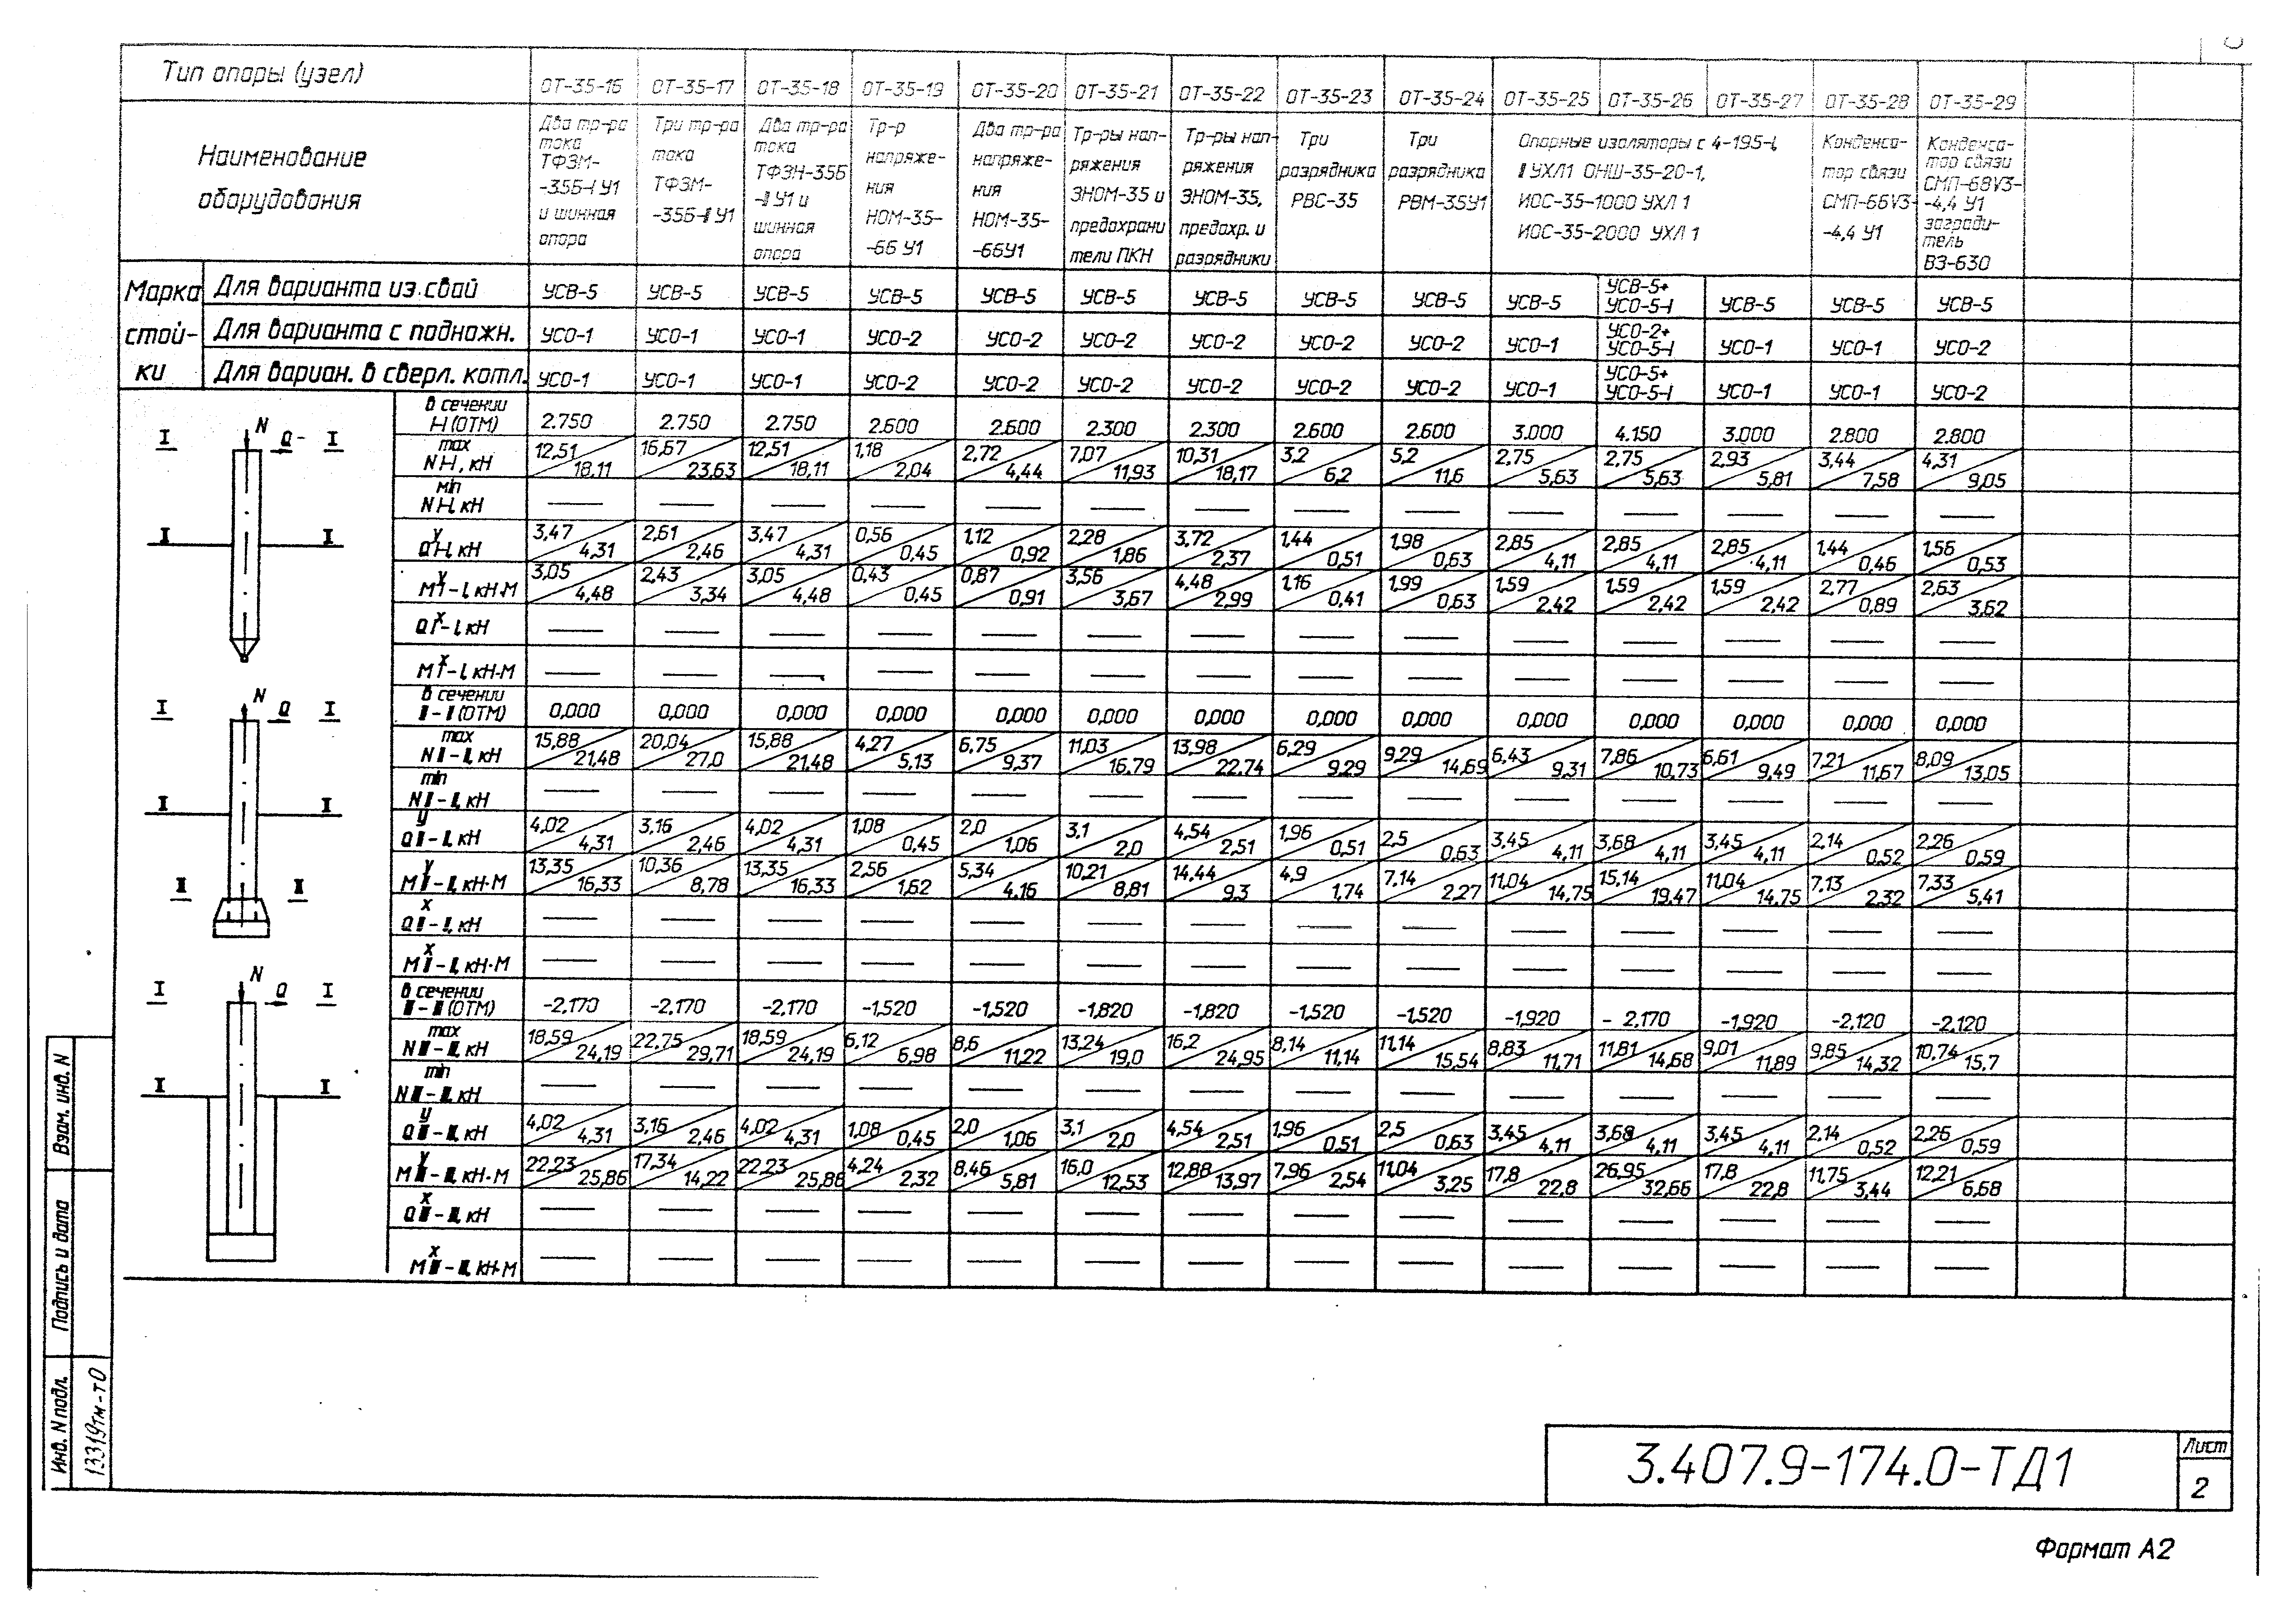 Тип опоры (узел) ОТ-35-16 ОТ-35-17 ОТ-35-18 ОТ-35-19 ОТ-35-20 ОТ-35-21 ОТ-35-22 ОТ-35-23 ОТ-35-24 ОТ-35-25 ОТ-35-26 ОТ-35-27 ОТ-35-28 ОТ-35-29
Наименование
оборудования
Два тр-ра
тока
ТФЗМ-
-35Б-I У1
и шинная
опора
Три тр-ра
тока
ТФЗМ-
-35Б-II У1
Два тр-ра
тока
ТФЗН-35Б
-II У1 и
шинная
опора
Тр-р
напряже-
ния
НОМ-35-
-66 У1
Два тр-ра
напряже-
ния
НОМ-35-
-66У1
Тр-ры нап-
ряжения
ЗНОМ-35 и
предохрани
тели ПКН
Тр-ры нап-
ряжения
ЗНОМ-35,
предохр. и
разрядники
Три
разрядника
РВС-35
Три
разрядника
РВМ-35У1
Опорные изоляторы с 4-195-I,
II УХЛ1 ОНШ-35-20-1,
ИОС-35-1000 УХЛ 1
ИОС-35-2000 УХЛ 1
Конденса-
тор связи
СМП-66V3-
-4,4 У1
Конденса-
тор связи
СМП-68V3-
-4,4 У1
загради-
тель
ВЗ-630
Марка
стой-
ки
Для варианта из свай УСВ-5 УСВ-5 УСВ-5 УСВ-5 УСВ-5 УСВ-5 УСВ-5 УСВ-5 УСВ-5 УСВ-5 УСВ-5+ УСО-5-I УСВ-5 УСВ-5 УСВ-5
Для варианта с подножн. УСО-1 УСО-1 УСО-1 УСО-2 УСО-2 УСО-2 УСО-2 УСО-2 УСО-2 УСО-1 УСО-2+ УСО-5-I УСО-1 УСО-1 УСО-2
Для вариан. в сверл. котл. УСО-1 УСО-1 УСО-1 УСО-2 УСО-2 УСО-2 УСО-2 УСО-2 УСО-2 УСО-1 УСО-5+ УСО-5-I УСО-1 УСО-1 УСО-2
в сечении
I-I (ОТМ) 2.750 2.750 2.750 2.600 2.600 2.300 2.300 2.600 2.600 3.000 4.150 3.000 2.800 2.800
max
N I-I, кН 12,51/18,11 16,67/23,63 12,51/18,11 1,18/2,04 2,72/4,44 7,07/11,93 10,31/18,17 3,2/6,2 5,2/11,6 2,75/5,63 2,75/5,63 2,93/5,81 3,44/7,58 4,31/9,05
min
N I-I, кН — — — — — — — — — — — — — —
у
Q I-I, кН 3,47/4,31 2,61/2,46 3,47/4,31 0,56/0,45 1,12/0,92 2,28/1,86 3,72/2,37 1,44/0,51 1,98/0,63 2,85/4,11 2,85/4,11 2,85/4,11 1,44/0,46 1,56/0,53
у
М I-I, кН·М 3,05/4,48 2,43/3,34 3,05/4,48 0,43/0,45 0,87/0,91 3,56/3,67 4,48/2,99 1,16/0,41 1,99/0,63 1,59/2,42 1,59/2,42 1,59/2,42 2,77/0,89 2,63/3,62
х
Q I-I, кН — — — — — — — — — — — — — —
х
М I-I, кН·М — — — — — — — — — — — — — —
в сечении
II-II (ОТМ) 0,000 0,000 0,000 0,000 0,000 0,000 0,000 0,000 0,000 0,000 0,000 0,000 0,000 0,000
max
N II-II, кН 15,88/21,48 20,04/27,0 15,88/21,48 4,27/5,13 6,75/9,37 11,03/16,79 13,98/22,74 6,29/9,29 9,29/14,69 6,43/9,31 7,86/10,73 6,61/9,49 7,21/11,67 8,09/13,05
min
N II-II, кН — — — — — — — — — — — — — —
у
Q II-II, кН 4,02/4,31 3,16/2,46 4,02/4,31 1,08/0,45 2,0/1,06 3,1/2,0 4,54/2,51 1,96/0,51 2,5/0,63 3,45/4,11 3,68/4,11 3,45/4,11 2,14/0,52 2,26/0,59
у
М II-II, кН·М 13,35/16,33 10,36/8,78 13,35/16,33 2,56/1,62 5,34/4,16 10,21/8,81 14,44/9,3 4,9/1,74 7,14/2,27 11,04/14,75 15,14/19,47 11,04/14,75 7,13/2,32 7,33/5,41
х
Q II-II, кН — — — — — — — — — — — — — —
х
М II-II, кН·М — — — — — — — — — — — — — —
в сечении
III-III (ОТМ) -2,170 -2,170 -2,170 -1,520 -1,520 -1,820 -1,820 -1,520 -1,520 -1,920 -2,170 -1,920 -2,120 -2,120
max
N III-III, кН 18,59/24,19 22,75/29,71 18,59/24,19 6,12/6,98 8,6/11,22 13,24/19,0 16,2/24,95 8,14/11,14 11,14/15,54 8,83/11,71 11,81/14,68 9,01/11,89 9,85/14,32 10,74/15,7
min
N III-III, кН — — — — — — — — — — — — — —
у
Q III-III, кН 4,02/4,31 3,16/2,46 4,02/4,31 1,08/0,45 2,0/1,06 3,1/2,0 4,54/2,51 1,96/0,51 2,5/0,63 3,45/4,11 3,68/4,11 3,45/4,11 2,14/0,52 2,26/0,59
у
М III-III, кН·М 22,23/25,86 17,34/14,22 22,23/25,86 4,24/2,32 8,46/5,81 16,0/12,53 12,88/13,97 7,96/2,54 11,04/3,25 17,8/22,8 26,95/32,66 17,8/22,8 11,75/3,44 12,21/6,68
х
Q III-III, кН — — — — — — — — — — — — — —
х
М III-III, кН·М — — — — — — — — — — — — — —
N
I Q I
I I
N
I Q I
I I
II II
N
I Q I
I I
Взам. инв. N
Подпись и дата
Инв. N подл.
13319тм-т0
3.407.9-174.0-ТД1
Лист
2
Формат А2